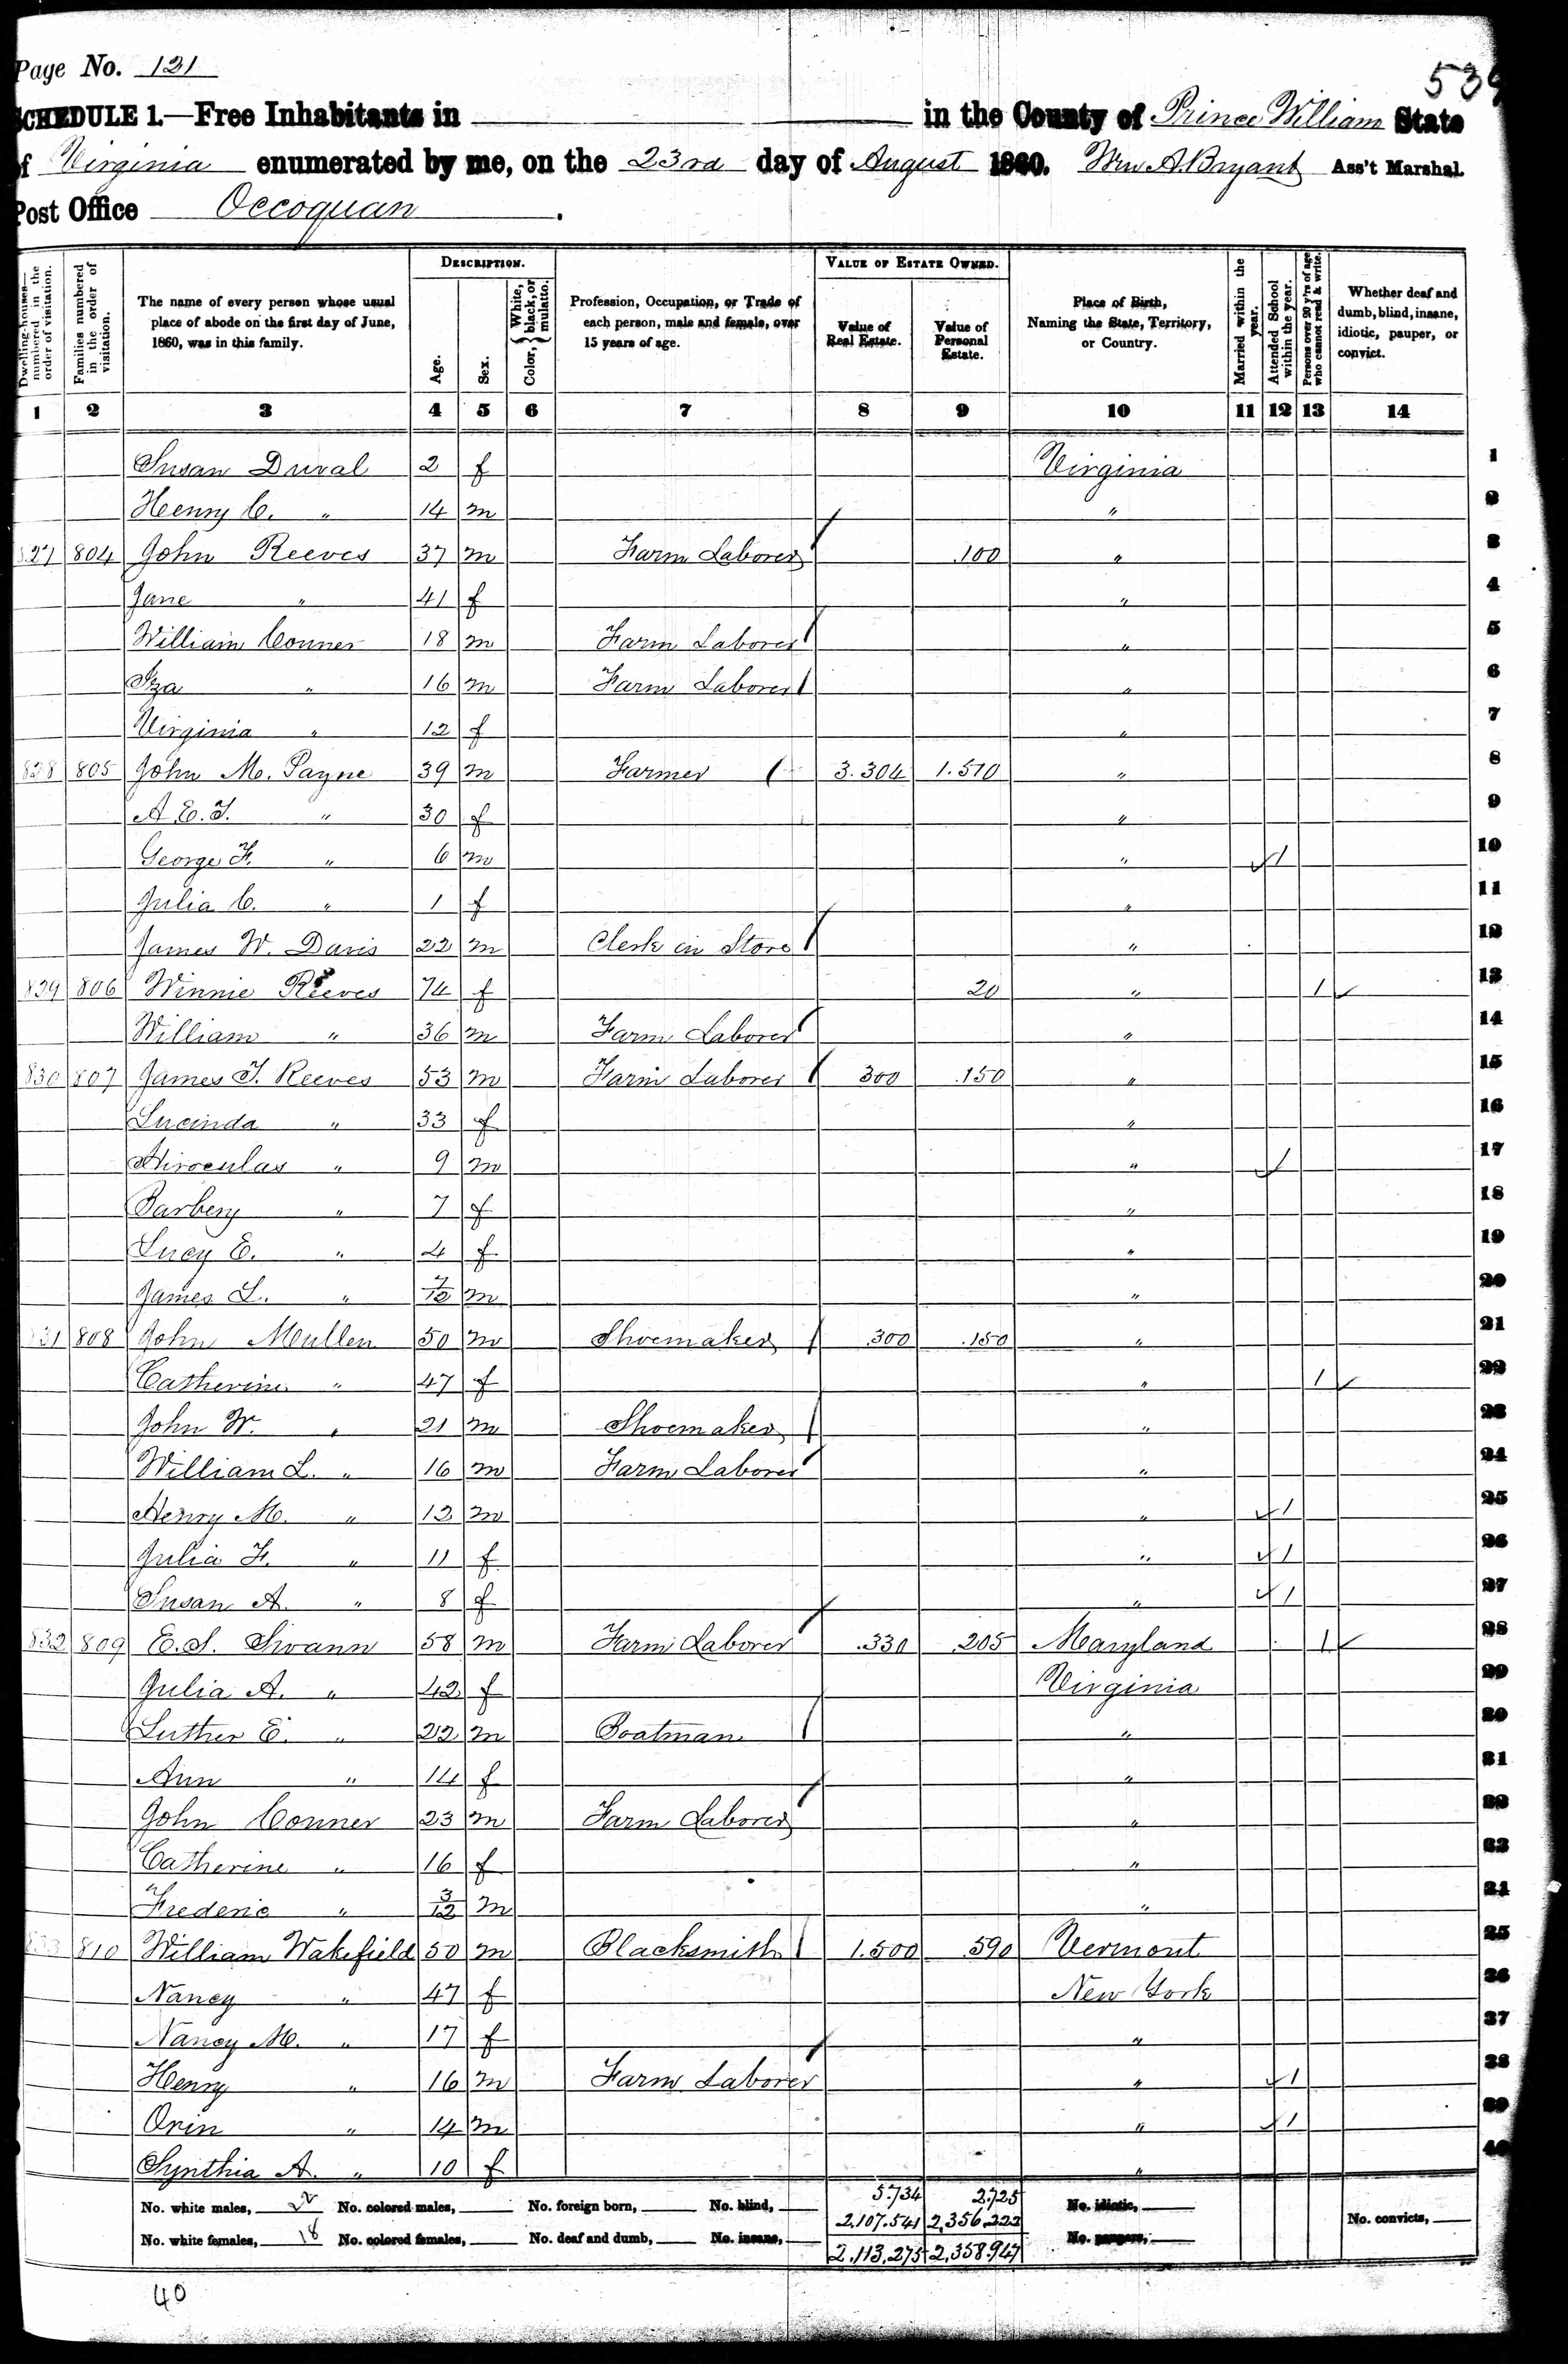 Page No. 121
539
SCHEDULE 1.—Free Inhabitants in in the County of Prince William State
of Virginia enumerated by me, on the 23rd day of August 1860. Wm A. Bryant Ass't Marshal.
Post Office Occoquan.
Dwelling-houses—numbered in the order of visitation.
Families numbered in the order of visitation.
The name of every person whose usual place of abode on the first day of June, 1860, was in this family.
DESCRIPTION.
Age.
Sex.
Color, { White, black, or mulatto.
Profession, Occupation, or Trade of each person, male and female, over 15 years of age.
VALUE OF ESTATE OWNED.
Value of Real Estate.
Value of Personal Estate.
Place of Birth, Naming the State, Territory, or Country.
Married within the year.
Attended School within the year.
Persons over 20 y'rs of age who cannot read & write.
Whether deaf and dumb, blind, insane, idiotic, pauper, or convict.
1 2 3 4 5 6 7 8 9 10 11 12 13 14
Susan Duval 2 f Virginia 1
Henry C. " 14 m " 2
827 804 John Reeves 37 m Farm Laborer / .100 " 3
Jane " 41 f " 4
William Conner 18 m Farm Laborer / " 5
Iza " 16 m Farm Laborer / " 6
Virginia " 12 f " 7
828 805 John M. Payne 39 m Farmer / 3.304 1.510 " 8
A. E. T. " 30 f " 9
George F. " 6 m " ✓ 1 10
Julia C. " 1 f " 11
James W. Davis 22 m Clerk in Store / " 12
829 806 Winnie Reeves 74 f 20 " 1 ✓ 13
William " 36 m Farm Laborer / " 14
830 807 James T. Reeves 53 m Farm Laborer / 300 .150 " 15
Lucinda " 33 f " 16
Hiroculas " 9 m " ✓ 1 17
Barbery " 7 f " 18
Lucy E. " 4 f " 19
James L. " 7/12 m " 20
831 808 John Mullen 50 m Shoemaker / .300 .150 " 21
Catherine " 47 f " 1 ✓ 22
John W. " 21 m Shoemaker / " 23
William L. " 16 m Farm Laborer / " 24
Henry M. " 12 m " ✓ 1 25
Julia F. " 11 f " ✓ 1 26
Susan A. " 8 f " ✓ 1 27
832 809 E. S. Swann 58 m Farm Laborer / .330 .205 Maryland 1 ✓ 28
Julia A. " 42 f Virginia 29
Luther E. " 22 m Boatman / " 30
Ann " 14 f " 31
John Conner 23 m Farm Laborer / " 32
Catherine " 16 f " 33
Frederic " 3/12 m " 34
833 810 William Wakefield 50 m Blacksmith / 1.500 .590 Vermont 35
Nancy " 47 f New York 36
Nancy M. " 17 f " 37
Henry " 16 m Farm Laborer / " ✓ 1 38
Orin " 14 m " ✓ 1 39
Synthia A. " 10 f " 40
No. white males, 22 No. colored males, No. foreign born, No. blind, 5.734 2.725 No. idiotic,
2.107.541 2,356.222
No. white females, 18 No. colored females, No. deaf and dumb, No. insane, 2.113.275 2,358.947 No. paupers, No. convicts,
40